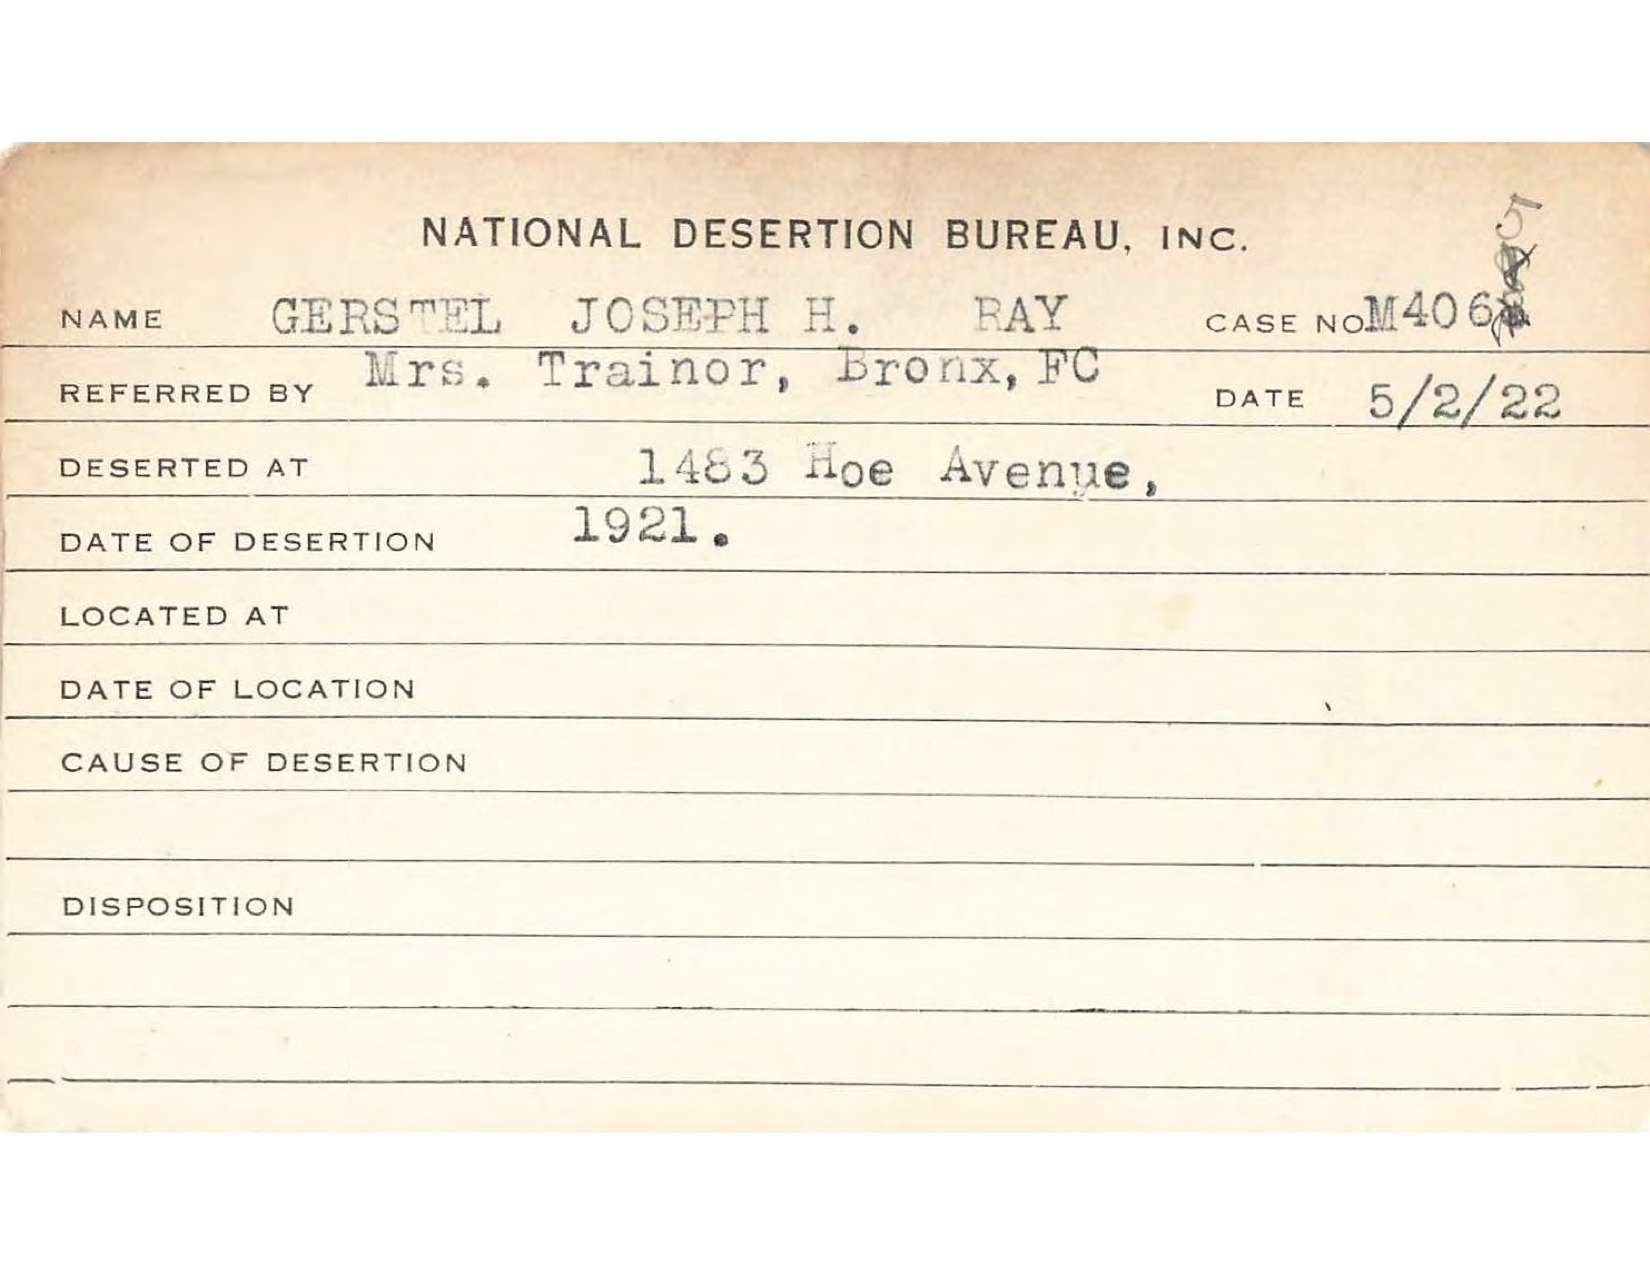 NATIONAL DESERTION BUREAU, INC.
NAME GERSTEL JOSEPH H. RAY CASE NO. M406
REFERRED BY Mrs. Trainor, Bronx, FC DATE 5/2/22
DESERTED AT 1483 Hoe Avenue,
DATE OF DESERTION 1921.
LOCATED AT
DATE OF LOCATION
CAUSE OF DESERTION
DISPOSITION